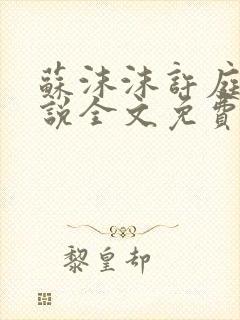 蘇沫沫許庭
說全文免費
黎皇却